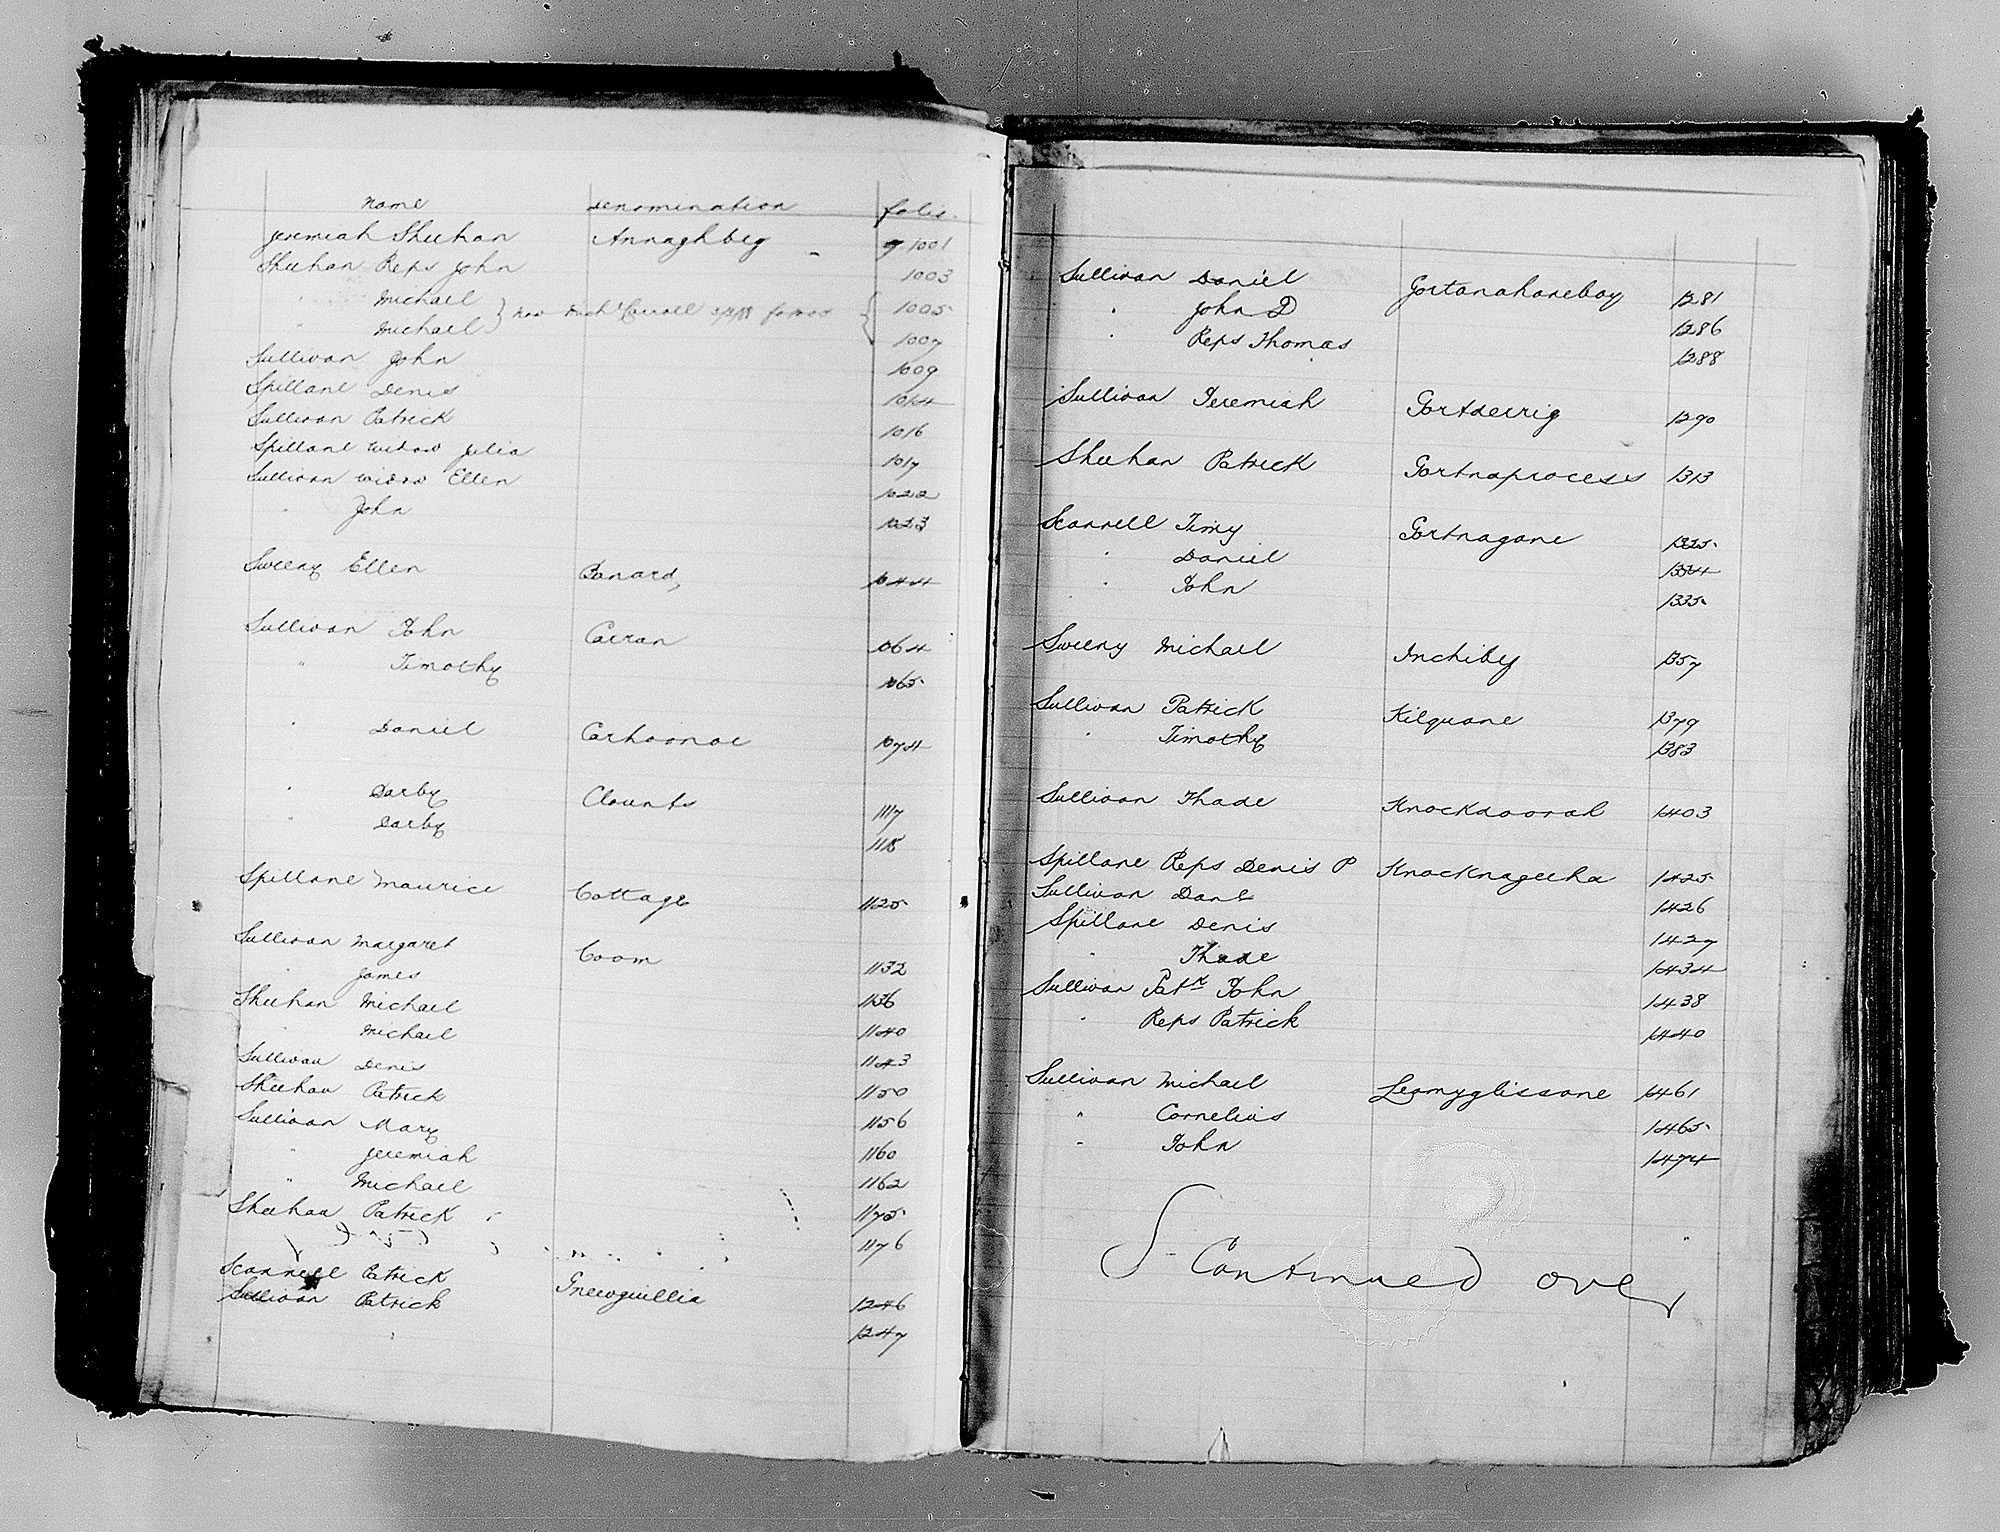 Name Denomination folio.
Jeremiah Sheehan Annaghbeg 1001
Sheehan Reps John 1003
" Michael } now Mich Carroll 1005
" Michael } 1007
Sullivan John 1009
Spillane Denis 1014
Sullivan Patrick 1016
Spillane Widow Julia 1017
Sullivan Widow Ellen 1022
" John 1023
Sweeny Ellen Banard, 1044
Sullivan John Carran 1064
" Timothy 1065
" Daniel Carhoonoe 1074
" Darby Clounts 1117
" Darby 1118
Spillane Maurice Cottage 1125
Sullivan Margaret Coom 1132
" James 1136
Sheehan Michael 1140
" Michael 1143
Sullivan Denis 1150
Sheehan Patrick 1156
Sullivan Mary 1160
" Jeremiah 1162
" Michael 1175
Sheehan Patrick 1176
Scannell Patrick Gneevguillia 1246
Sullivan Patrick 1247
Sullivan Daniel Gortanahaneboy 1281
" John D 1286
" Reps Thomas 1288
Sullivan Jeremiah Gortderrig 1290
Sheehan Patrick Gortnaprocess 1313
Scannell Timy Gortnagane 1325
" Daniel 1334
" John 1335
Sweeny Michael Inchibeg 1357
Sullivan Patrick Kilquane 1379
" Timothy 1383
Sullivan Thade Knockdoorah 1403
Spillane Reps Denis P Knocknageeha 1425
Sullivan Danl 1426
Spillane Denis 1427
" Thade 1434
Sullivan Patk John 1438
" Reps Patrick 1440
Sullivan Michael Leamyglissane 1461
" Cornelius 1465
" John 1474
S- Continued over